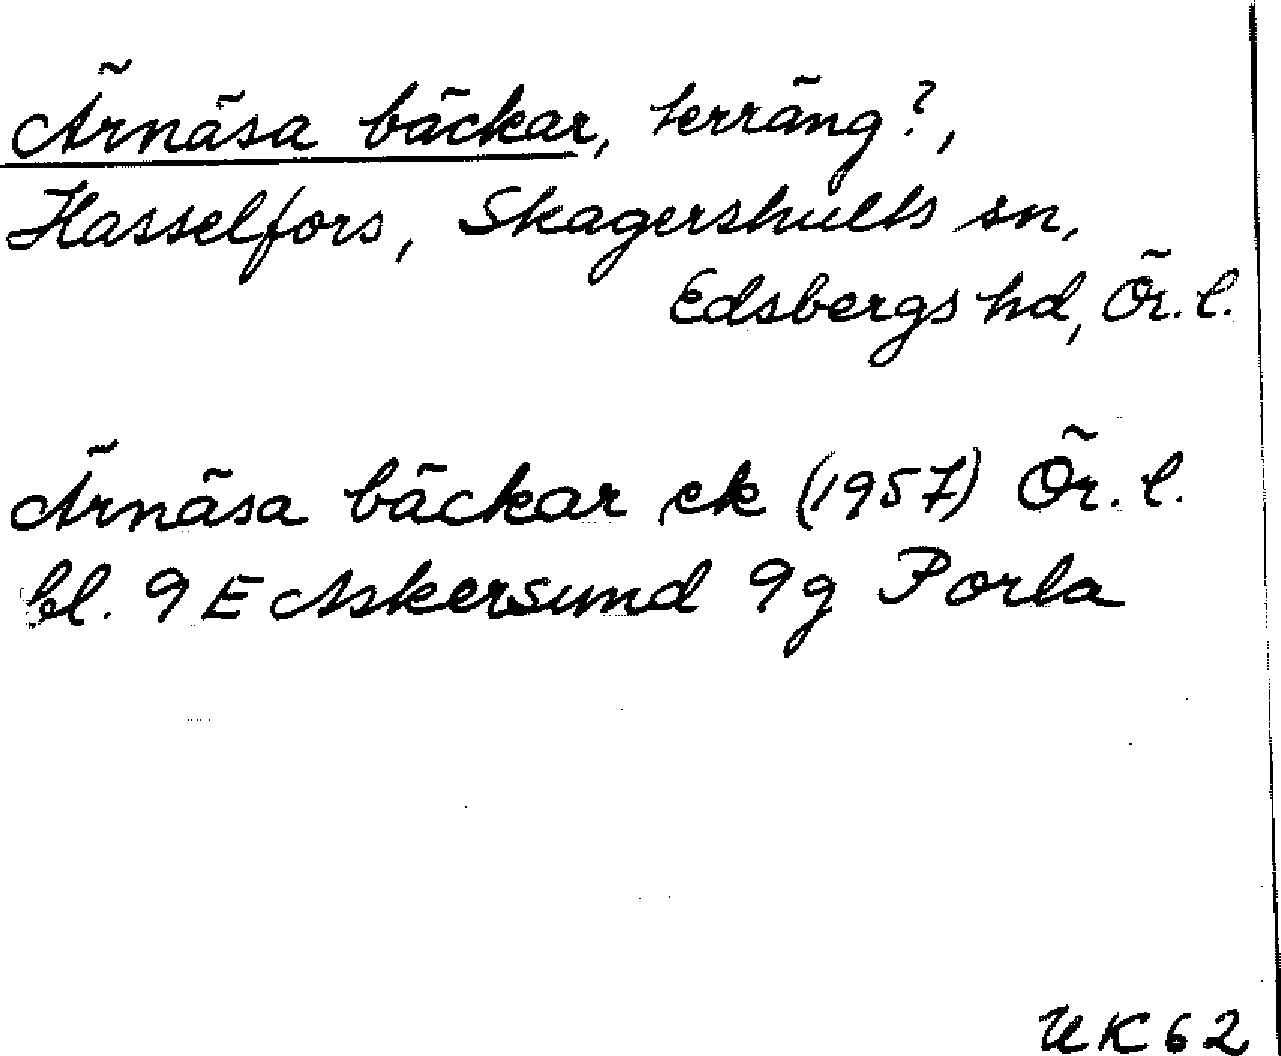 Ärnäsa bäckar, terräng?,
Hasselfors, Skagershults sn,
Edsbergs hd, Ör. l.
Ärnäsa bäckar ek (1957) Ör. l.
bl. 9 E Askersund 9g Porla
UK 62